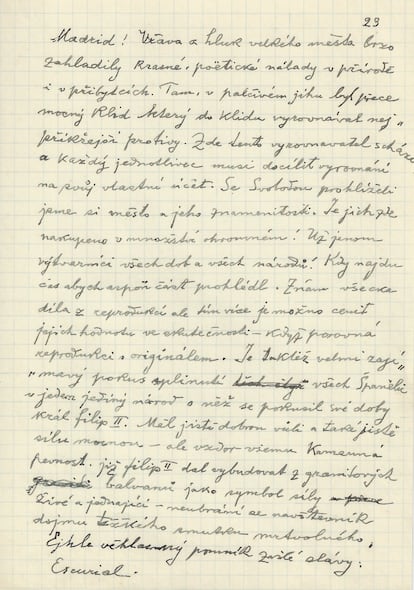 23
Madrid! Vřava a hluk velkého města brzo
zahladily krasné, poëtické nálady v přírodě
i v příbytcích. Tam, v palčivém jihu byl přece
mocný klid který do klidu vyrovnával nej„
příkřejší protivy. Zde tento vyrovnavatel schází
a každý jednotlivec musí docílit vyrovnání
na svůj vlastní účet. Se Svobodou prohlíželi
jsme si město a jeho znamenitosti. Je jich zde
nakupeno v množství ohromném! Už jenom
výtvarnictví všech dob a všech národů! Kdy najdu
čas abych aspoň část prohlédl. Znám všecka
díla z reprodukcí ale tím více je možno cenit
jejich hodnotu ve skutečnosti – když porovná
reprodukci s originálem. Je taktéž velmi zají„
„mavý pokus splinutí všech Španělů
v jeden jediný národ o něž se pokusil své doby
král filip II. Měl jistě dobrou vůli a také jistě
sílu mocnou – ale vzdor všemu kamenná
pevnost, jíž filip II dal vybudovat z granitových
balvanů jako symbol síly
živé a jednající – neubrání se návštěvník
dojmu těžkého smutku mrtvolného.
Ejhle věhlasný pomník zašlé slávy:
Escurial.